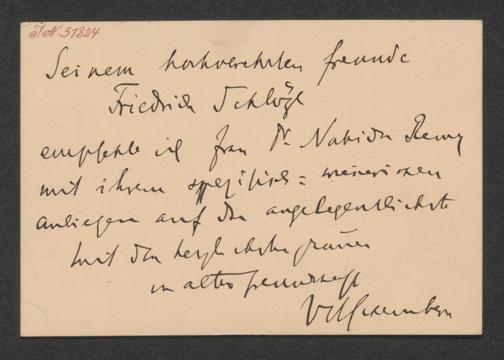 I.N. 51824
Seinem hochverehrten Freunde
Friedrich Schlögl
empfehle ich Frau Dr. Nahida Remy
mit ihrem spezifisch = wienerischen
Anliegen auf das angelegentlichste
Mit den herzlichsten Grüßen
in alter Freundschaft